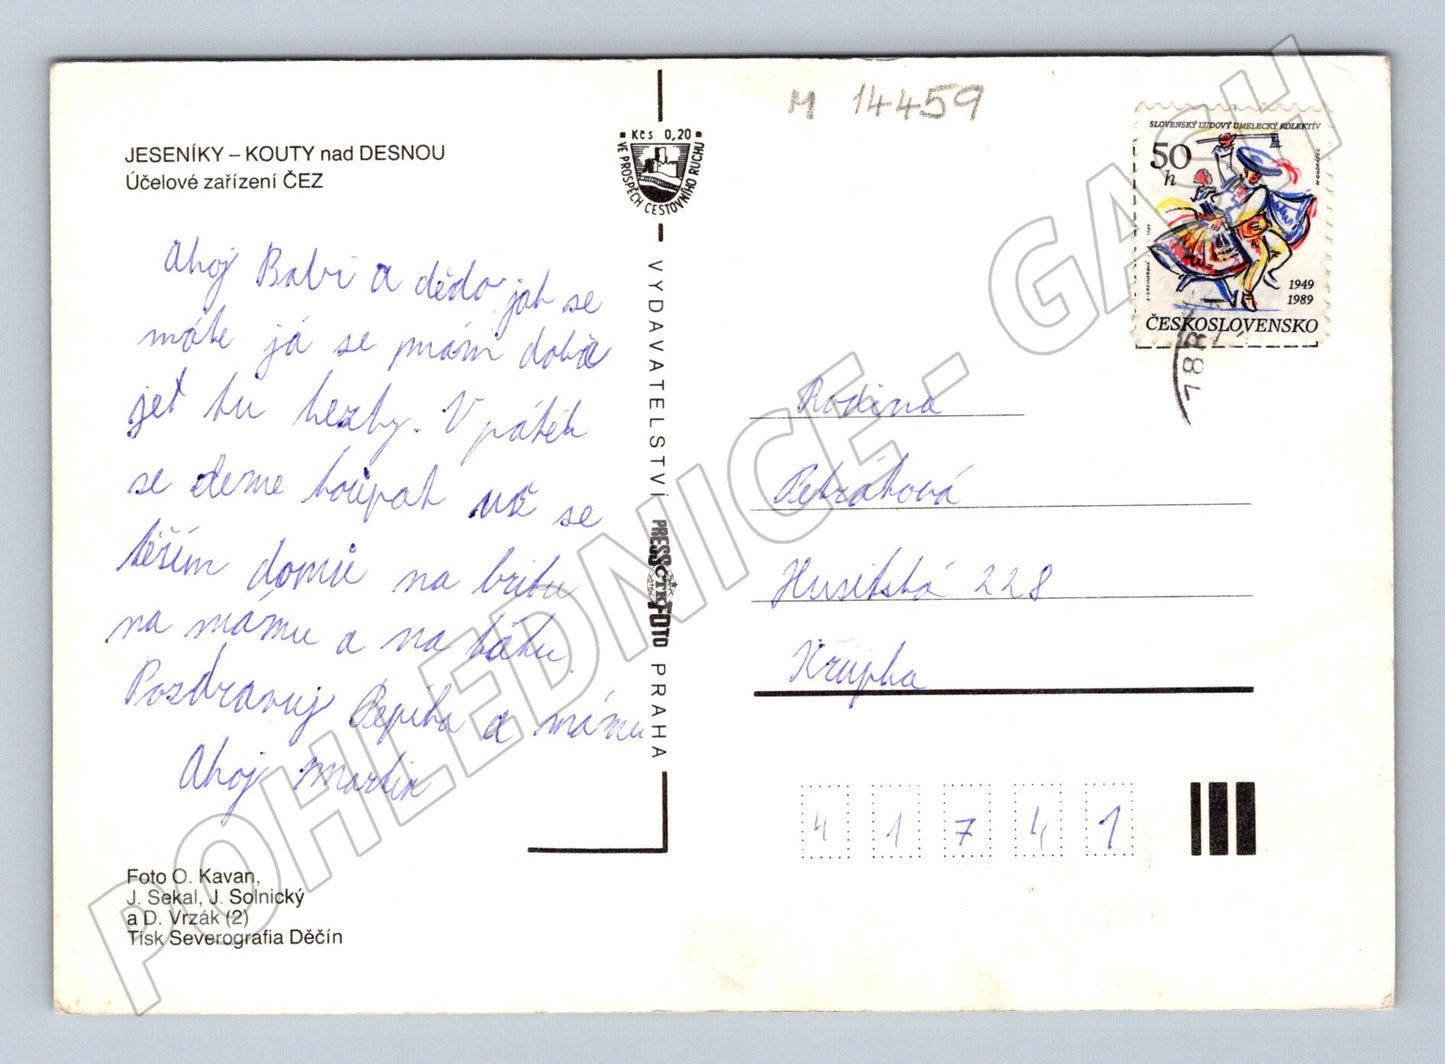 M 14459
JESENÍKY – KOUTY nad DESNOU
Účelové zařízení ČEZ
Kčs 0,20
VE PROSPĚCH CESTOVNÍHO RUCHU
SLOVENSKÝ ĽUDOVÝ UMELECKÝ KOLEKTÍV
50 h
1949
1989
ČESKOSLOVENSKO
788
Ahoj Babi a dědo jak se
máte já se mám dobře
jet tu hezky. V pátek
se deme koupat už se
těším domů na britu
na mámu a na tátu.
Pozdravuj Pepíka a mámu
Ahoj Martin
VYDAVATELSTVÍ PRESSFOTO PRAHA
ČTK
Rodina
Petráková
Husitská 228
Krupka
41741
Foto O. Kavan,
J. Sekal, J. Solnický
a D. Vrzák (2)
Tisk Severografia Děčín
POHLEDNICE - GASH